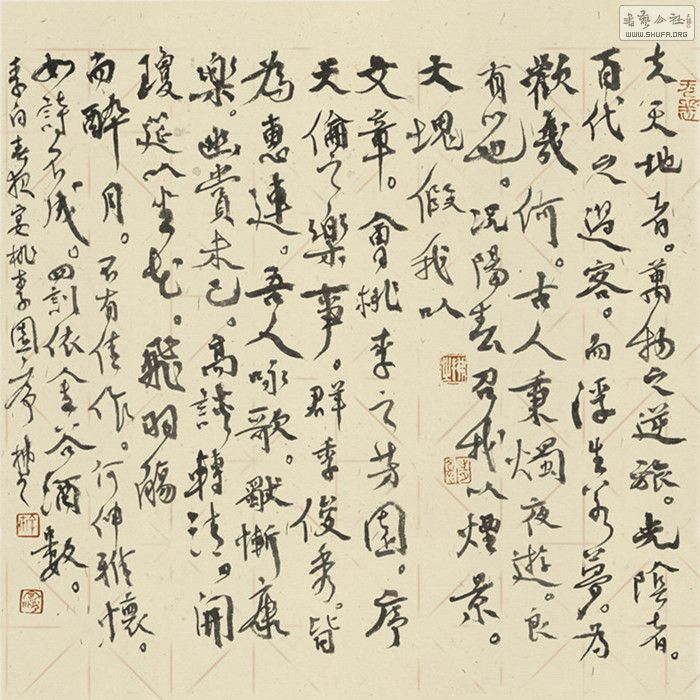 書藝公社
WWW.SHUFA.ORG
夫天地者。萬物之逆旅。光陰者。
百代之過客。而浮生若夢。為
歡幾何。古人秉燭夜遊。良
有以也。況陽春召我以煙景。
大塊假我以
文章。會桃李之芳園。序
天倫之樂事。群季俊秀。皆
為惠連。吾人咏歌。獨慚康
樂。幽賞未已。高談轉清。開
瓊筵以坐花。飛羽觴
而醉月。不有佳作。何伸雅懷。
如詩不成。罰依金谷酒數。
李白春夜宴桃李園序